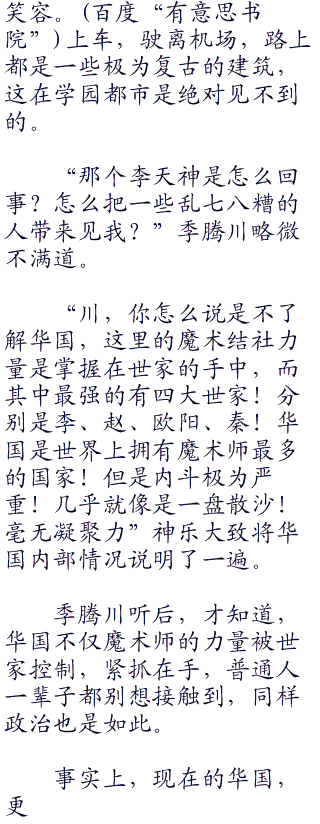 笑容。(百度“有意思书
院”)上车，驶离机场，路上
都是一些极为复古的建筑，
这在学园都市是绝对见不到
的。
“那个李天神是怎么回
事？怎么把一些乱七八糟的
人带来见我？”季腾川略微
不满道。
“川，你怎么说是不了
解华国，这里的魔术结社力
量是掌握在世家的手中，而
其中最强的有四大世家！分
别是李、赵、欧阳、秦！华
国是世界上拥有魔术师最多
的国家！但是内斗极为严
重！几乎就像是一盘散沙！
毫无凝聚力”神乐大致将华
国内部情况说明了一遍。
季腾川听后，才知道，
华国不仅魔术师的力量被世
家控制，紧抓在手，普通人
一辈子都别想接触到，同样
政治也是如此。
事实上，现在的华国，
更